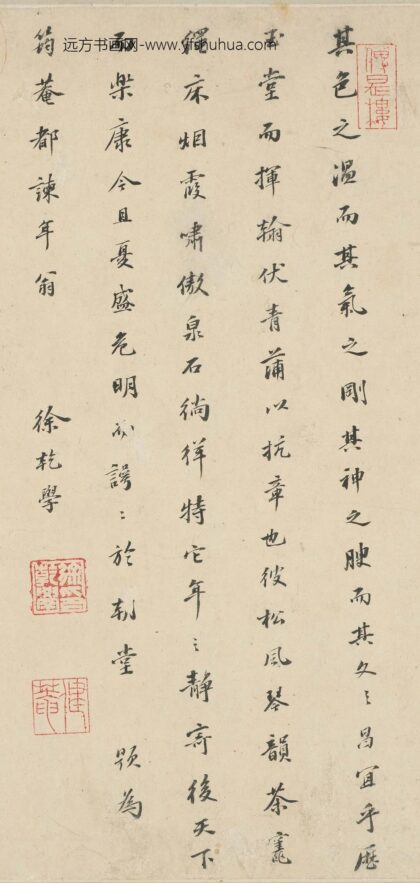 远方书画网-www.yfshuhua.com
傳是樓
其色之温而其氣之剛其神之腴而其文之昌宜乎歷
玉堂而揮翰伏青蒲以抗章也彼松風琴韻茶竈
繩床烟霞嘯傲泉石徜徉特它年之静寄後天下
而樂康今且憂盛危明而諤〻於朝堂 題為
筠菴都諫年翁 徐乾學
健菴